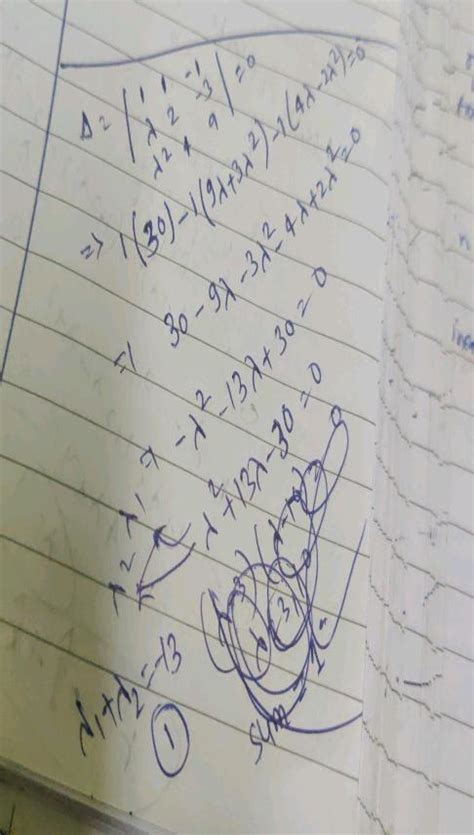 Δ = | 1 1 -1 | = 0
| λ 2 -3 |
| λ² 4 9 |
⇒ 1(30) - 1(9λ+3λ²) - 1(4λ-2λ²) = 0
⇒ 30 - 9λ - 3λ² - 4λ + 2λ² = 0
⇒ -λ² - 13λ + 30 = 0
λ² + 13λ - 30 = 0
λ₁ + λ₂ = -13
①
Sum =